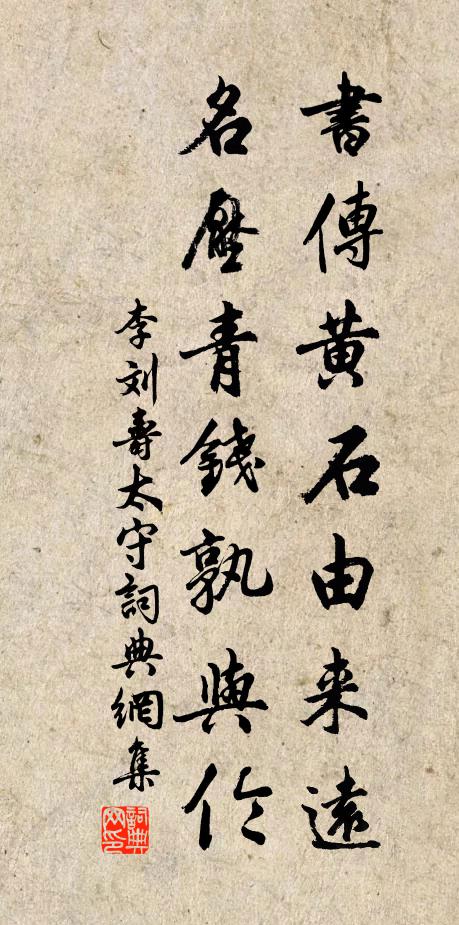 書傳黄石由来遠
名壓青錢孰與伦
李刘壽太守詞典網集
詞典网印